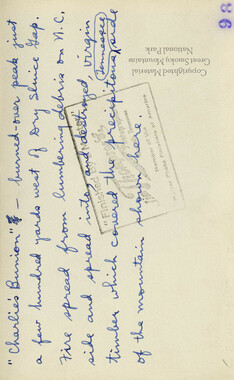 "Charlie's Bunion" — burned-over peak just
a few hundred yards west of Dry Sluice Gap.
Fire spread from lumbering debris on N.C.
side and spread into and destroyed virgin
timber which covered the precipitous Tennessee side
of the mountain shown here
Copyrighted Material
Great Smoky Mountains
National Park
98